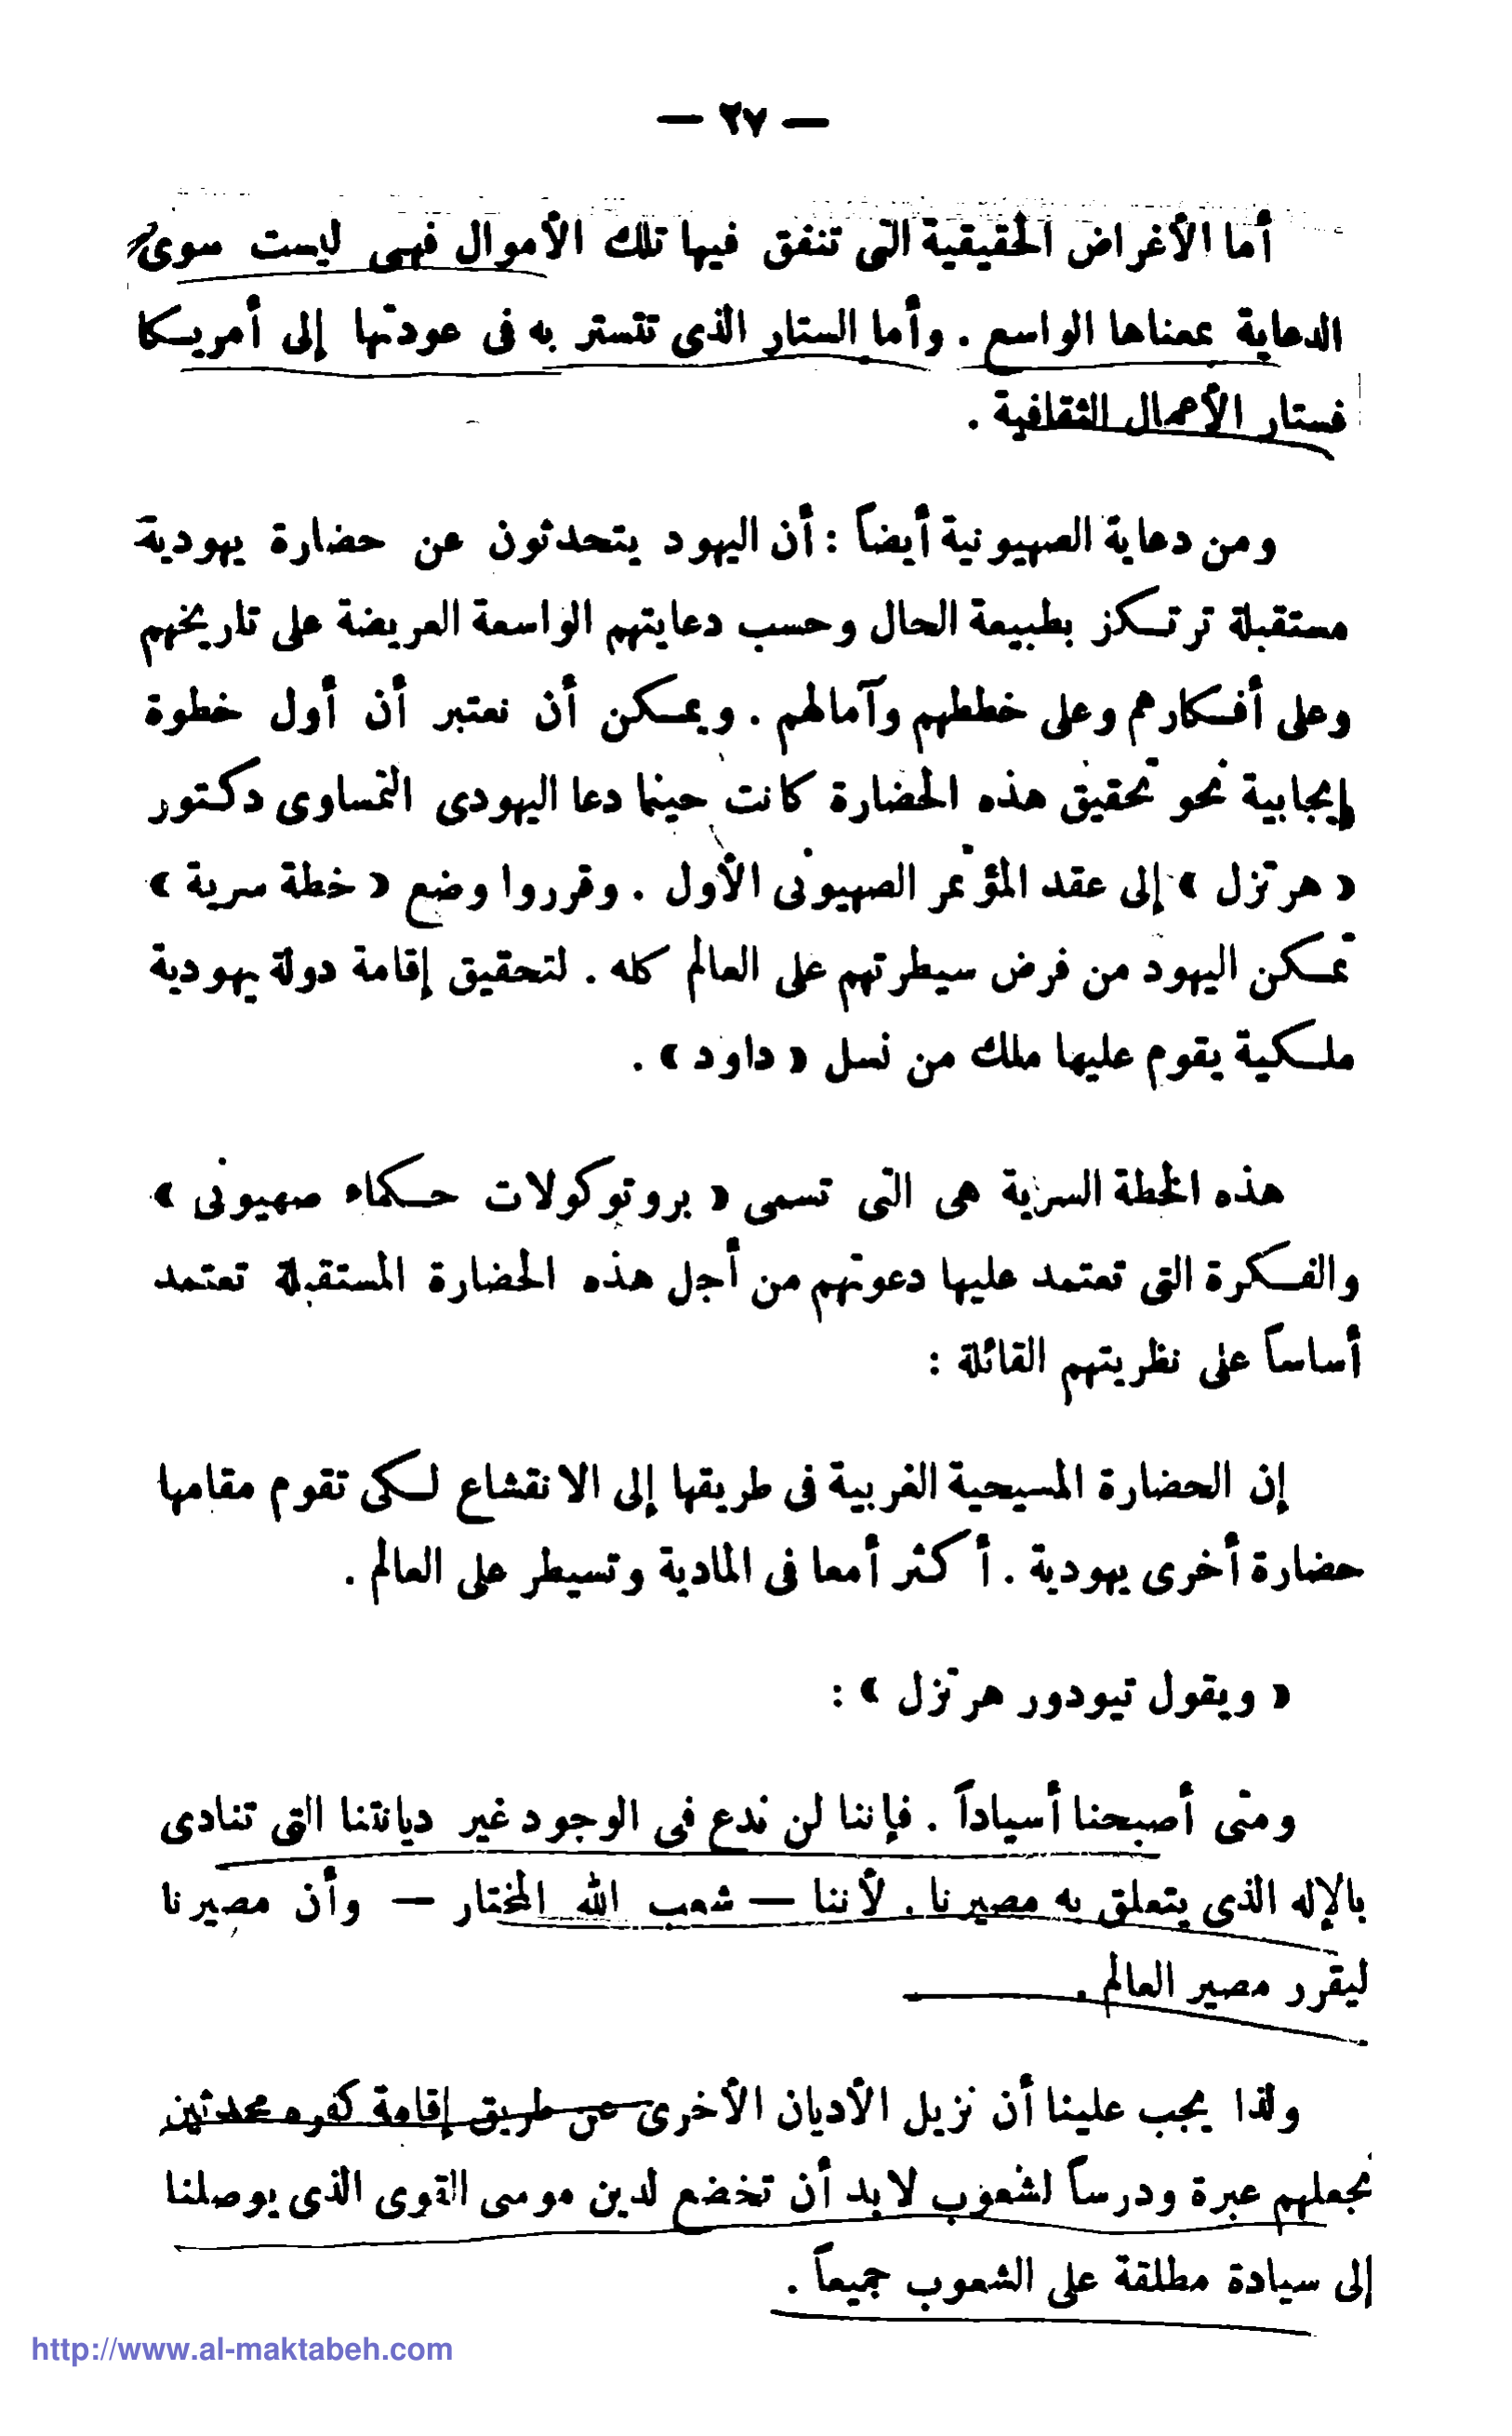 — ٢٧ —
أما الأغراض الحقيقية التى تنفق فيها تلك الأموال فهى ليست سوى
الدعاية بمعناها الواسع . وأما الستار الذى تتستر به فى عودتها إلى أمريكا
فستار الأعمال الثقافية .
ومن دعاية الصهيونية أيضاً : أن اليهود يتحدثون عن حضارة يهودية
مستقبلة ترتكز بطبيعة الحال وحسب دعايتهم الواسعة العريضة على تاريخهم
وعلى أفكارهم وعلى خططهم وآمالهم . ويمكن أن نعتبر أن أول خطوة
إيجابية نحو تحقيق هذه الحضارة كانت حينما دعا اليهودى النمساوى دكتور
« هرتزل » إلى عقد المؤتمر الصهيونى الأول . وقرروا وضع « خطة سرية »
تمكن اليهود من فرض سيطرتهم على العالم كله . لتحقيق إقامة دولة يهودية
ملكية يقوم عليها ملك من نسل « داود » .
هذه الخطة السرية هى التى تسمى « بروتوكولات حكماء صهيونى »
والفكرة التى تعتمد عليها دعوتهم من أجل هذه الحضارة المستقبلة تعتمد
أساساً على نظريتهم القائلة :
إن الحضارة المسيحية الغربية فى طريقها إلى الانقشاع لكى تقوم مقامها
حضارة أخرى يهودية . أكثر أمعا فى المادية وتسيطر على العالم .
« ويقول تيودور هرتزل » :
ومتى أصبحنا أسياداً . فإننا لن ندع فى الوجود غير ديانتنا التى تنادى
بالإله الذى يتعلق به مصيرنا . لأننا — شعب الله المختار — وأن مصيرنا
ليقرر مصير العالم .
ولذا يجب علينا أن نزيل الأديان الأخرى عن طريق إقامة كفره محدثين
نجعلهم عبرة ودرساً لشعوب لابد أن تخضع لدين موسى القوى الذى يوصلنا
إلى سيادة مطلقة على الشعوب جميعاً .
http://www.al-maktabeh.com